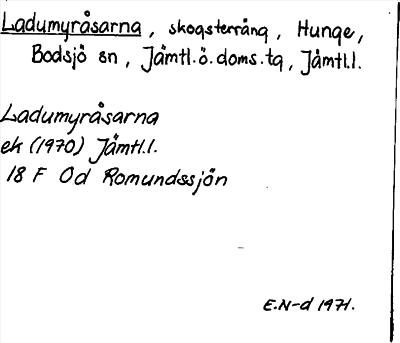 Ladumyråsarna, skogsterräng, Hunge,
Bodsjö sn, Jämtl.ö.doms.tg, Jämtl.l.
Ladumyråsarna
ek (1970) Jämtl.l.
18 F Od Romundssjön
E.N-d 1971.